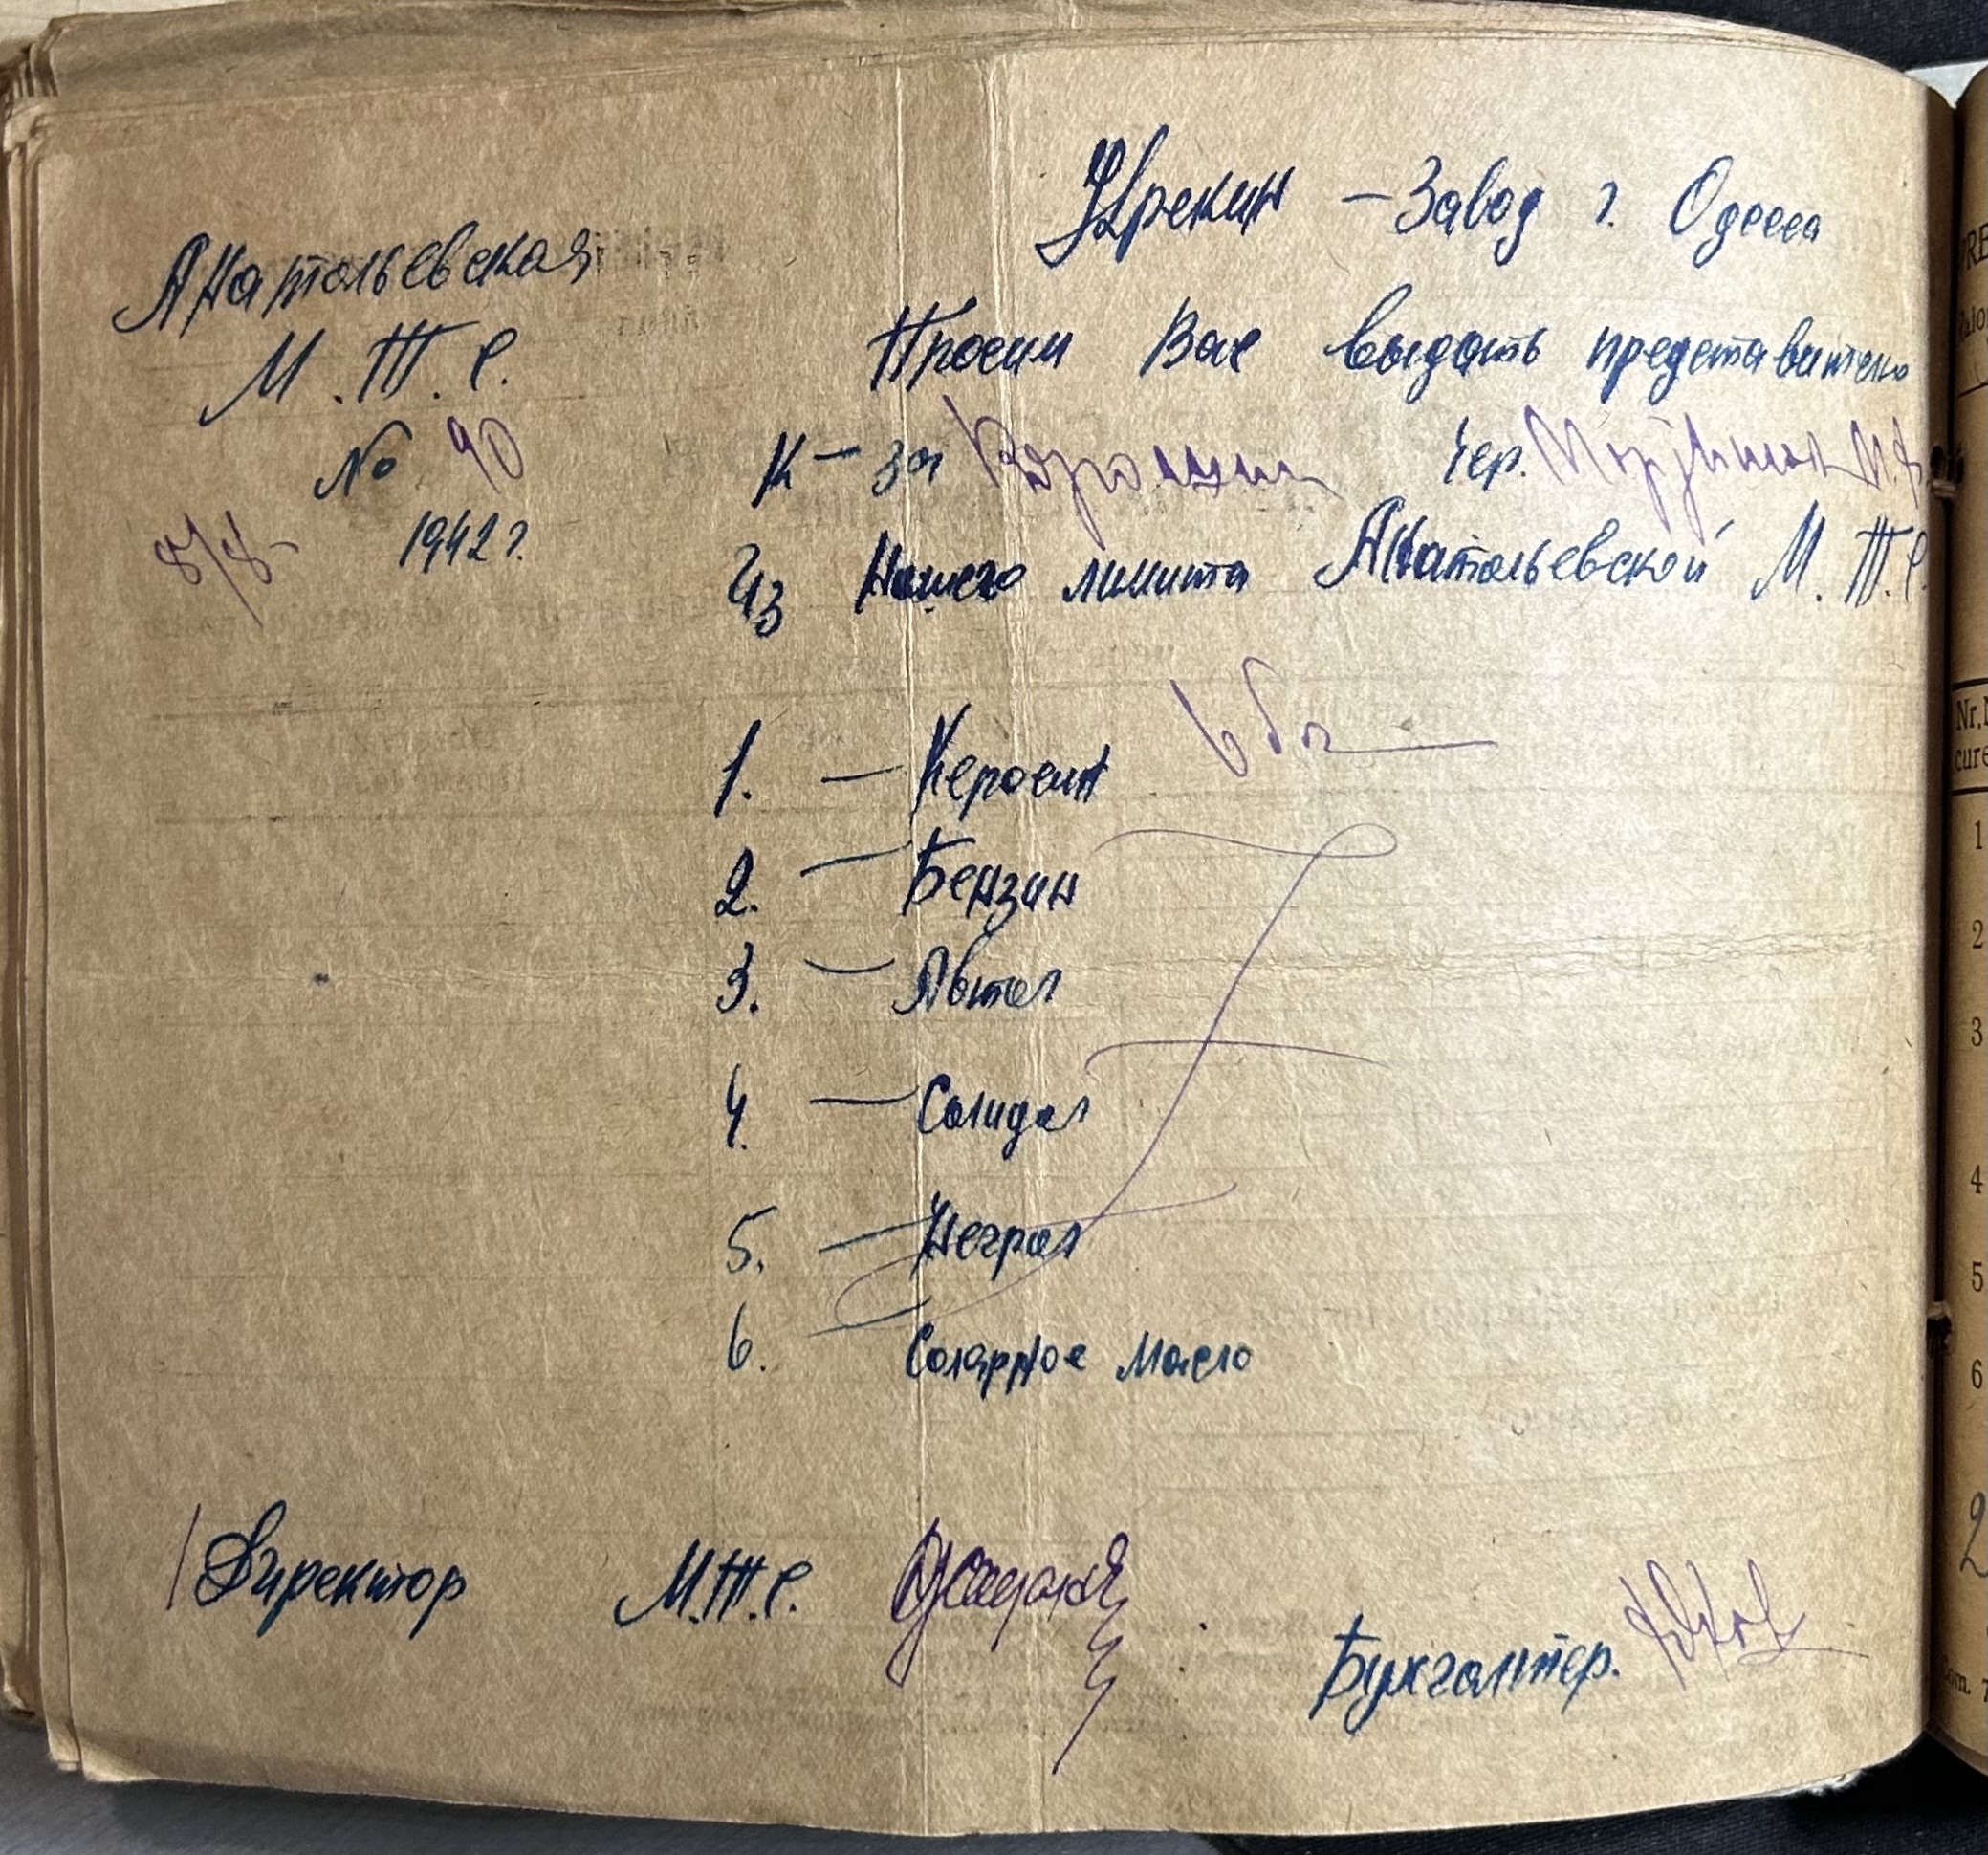 Анатольевская
М. Т. С.
№ 90
8/8- 1942 г.
Крекин – Завод г. Одесса
Просим Вас выдать представителю
К – за чер.
Из Нашего лимита Анатольевской М. Т. С.
1. – Керосин
2. – Бензин
3. – Автол
4. – Солидол
5. – Неграл
6. Солярное Масло
Директор М.Т.С.
Бухгалтер.
1
2
3
4
5
6